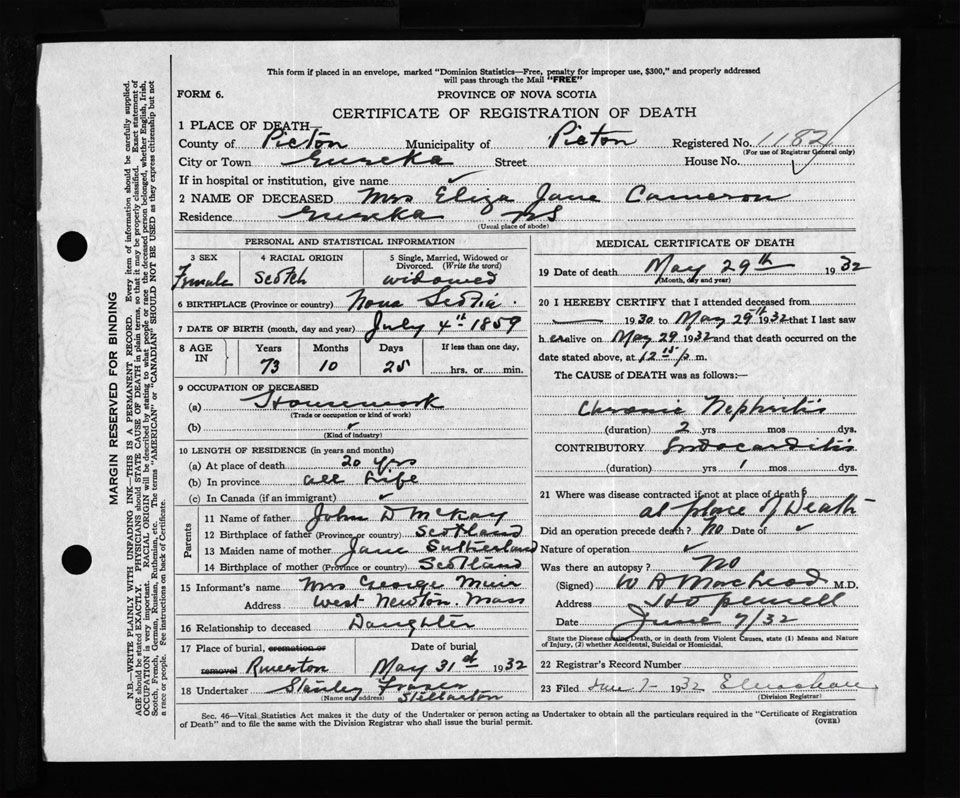 This form if placed in an envelope, marked "Dominion Statistics—Free, penalty for improper use, $300," and properly addressed
will pass through the Mail "FREE"
FORM 6.
PROVINCE OF NOVA SCOTIA
CERTIFICATE OF REGISTRATION OF DEATH
1 PLACE OF DEATH—
County of Picton Municipality of Picton Registered No. 1182
(For use of Registrar General only)
City or Town Eureka Street House No.
If in hospital or institution, give name ✓
2 NAME OF DECEASED Mrs Eliza Jane Cameron
Residence Eureka NS
(Usual place of abode)
PERSONAL AND STATISTICAL INFORMATION
3 SEX 4 RACIAL ORIGIN 5 Single, Married, Widowed or
Divorced. (Write the word)
Female Scotch widowed
6 BIRTHPLACE (Province or country) Nova Scotia.
7 DATE OF BIRTH (month, day and year) July 4th 1859
8 AGE IN Years Months Days If less than one day,
73 10 25 hrs. or min.
9 OCCUPATION OF DECEASED
(a) Housework
(Trade or occupation or kind of work)
(b) ✓
(Kind of industry)
10 LENGTH OF RESIDENCE (in years and months)
(a) At place of death 20 yrs
(b) In province all Life
(c) In Canada (if an immigrant) ✓
Parents
11 Name of father John D McKay
12 Birthplace of father (Province or country) Scotland
13 Maiden name of mother Jane Sutherland
14 Birthplace of mother (Province or country) Scotland
15 Informant's name Mrs George Muir
Address West Newton. Mass
16 Relationship to deceased Daughter
17 Place of burial, cremation or Date of burial
removal Riverton May 31st 1932
18 Undertaker Stanley Fraser
(Name and address) Stellarton
MEDICAL CERTIFICATE OF DEATH
19 Date of death May 29th 1932
(Month, day and year)
20 I HEREBY CERTIFY that I attended deceased from
— 1930 to May 29th 1932 that I last saw
h er alive on May 29 1932 and that death occurred on the
date stated above, at 12 15 p m.
The CAUSE of DEATH was as follows:—
Chronic Nephritis
(duration) 2 yrs mos dys.
CONTRIBUTORY Endocarditis
(duration) yrs 1 mos dys.
21 Where was disease contracted if not at place of death?
at place of Death
Did an operation precede death? No Date of ✓
Nature of operation ✓
Was there an autopsy? No
(Signed) W A MacLeod M.D.
Address Hopewell
Date June 7/32
State the Disease causing Death, or in death from Violent Causes, state (1) Means and Nature
of Injury, (2) whether Accidental, Suicidal or Homicidal.
22 Registrar's Record Number
23 Filed June 7- 1932
(Division Registrar)
Sec. 46—Vital Statistics Act makes it the duty of the Undertaker or person acting as Undertaker to obtain all the particulars required in the "Certificate of Registration
of Death" and to file the same with the Division Registrar who shall issue the burial permit.
(OVER)
MARGIN RESERVED FOR BINDING
N.B.—WRITE PLAINLY WITH UNFADING INK—THIS IS A PERMANENT RECORD. Every item of information should be carefully supplied.
AGE should be stated EXACTLY. PHYSICIANS should STATE CAUSE OF DEATH in plain terms, so that it may be properly classified. Exact statement of
OCCUPATION is very important. RACIAL ORIGIN will be described by stating to what people or race the deceased person belonged, whether English, Irish,
Scotch, French, German, Russian, Ruthenian, etc. The terms "AMERICAN" or "CANADIAN" SHOULD NOT BE USED as they express citizenship but not
a race or people. See instructions on back of Certificate.